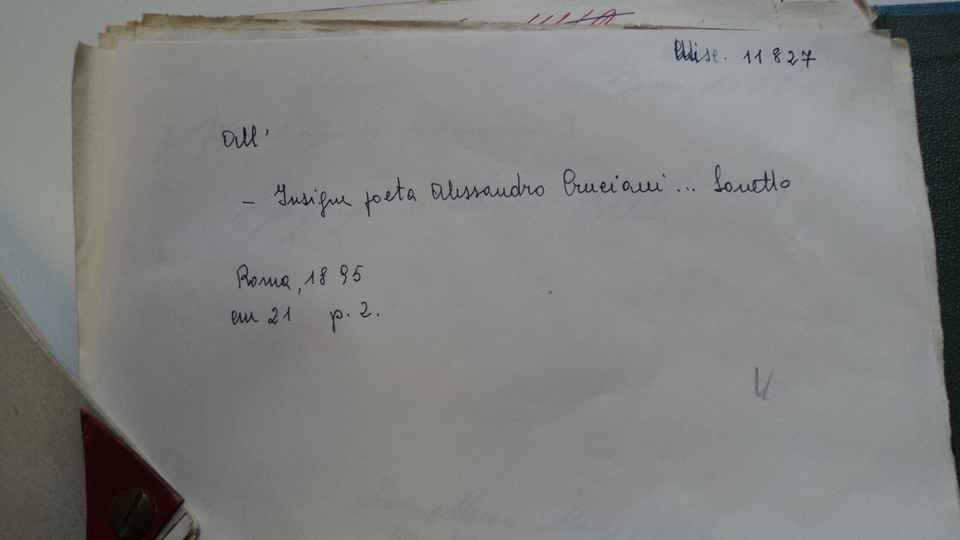 Misc. 11827
All'
- Insigne poeta Alessandro Cruciani... Sonetto
Roma, 1895
cm 21 p. 2.
V